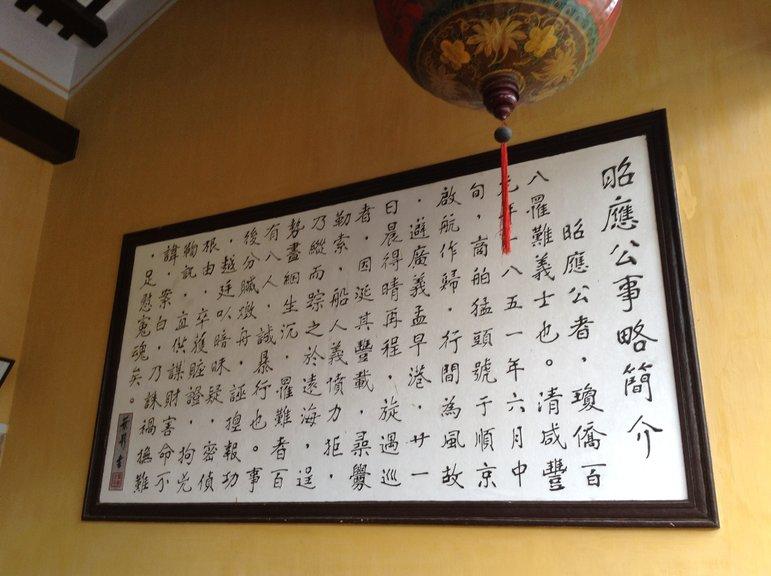 昭應公事略簡介
昭應公者，瓊僑百
八罹難義士也。清咸豐
元年一八五一年六月中
旬，商舶猛頭號于順京
啟航作歸．行間為風故
．避廣義孟早港．廿一
日晨得晴再程，旋遇巡
者，因涎其豐載，尋釁
勒索，船人義憤力拒，
乃縱而踪之於遠海，逞
勢盡綑生沉．罹難者百
有八人，誠暴行也。事
後分贓燬舟，誣捏報功
．越廷以暗昧疑，密偵
根由，卒獲賍證，拘兇
鞫訊，直供謀財害命不
諱．案白，乃誅禍撫難
．足慰冤魂矣。